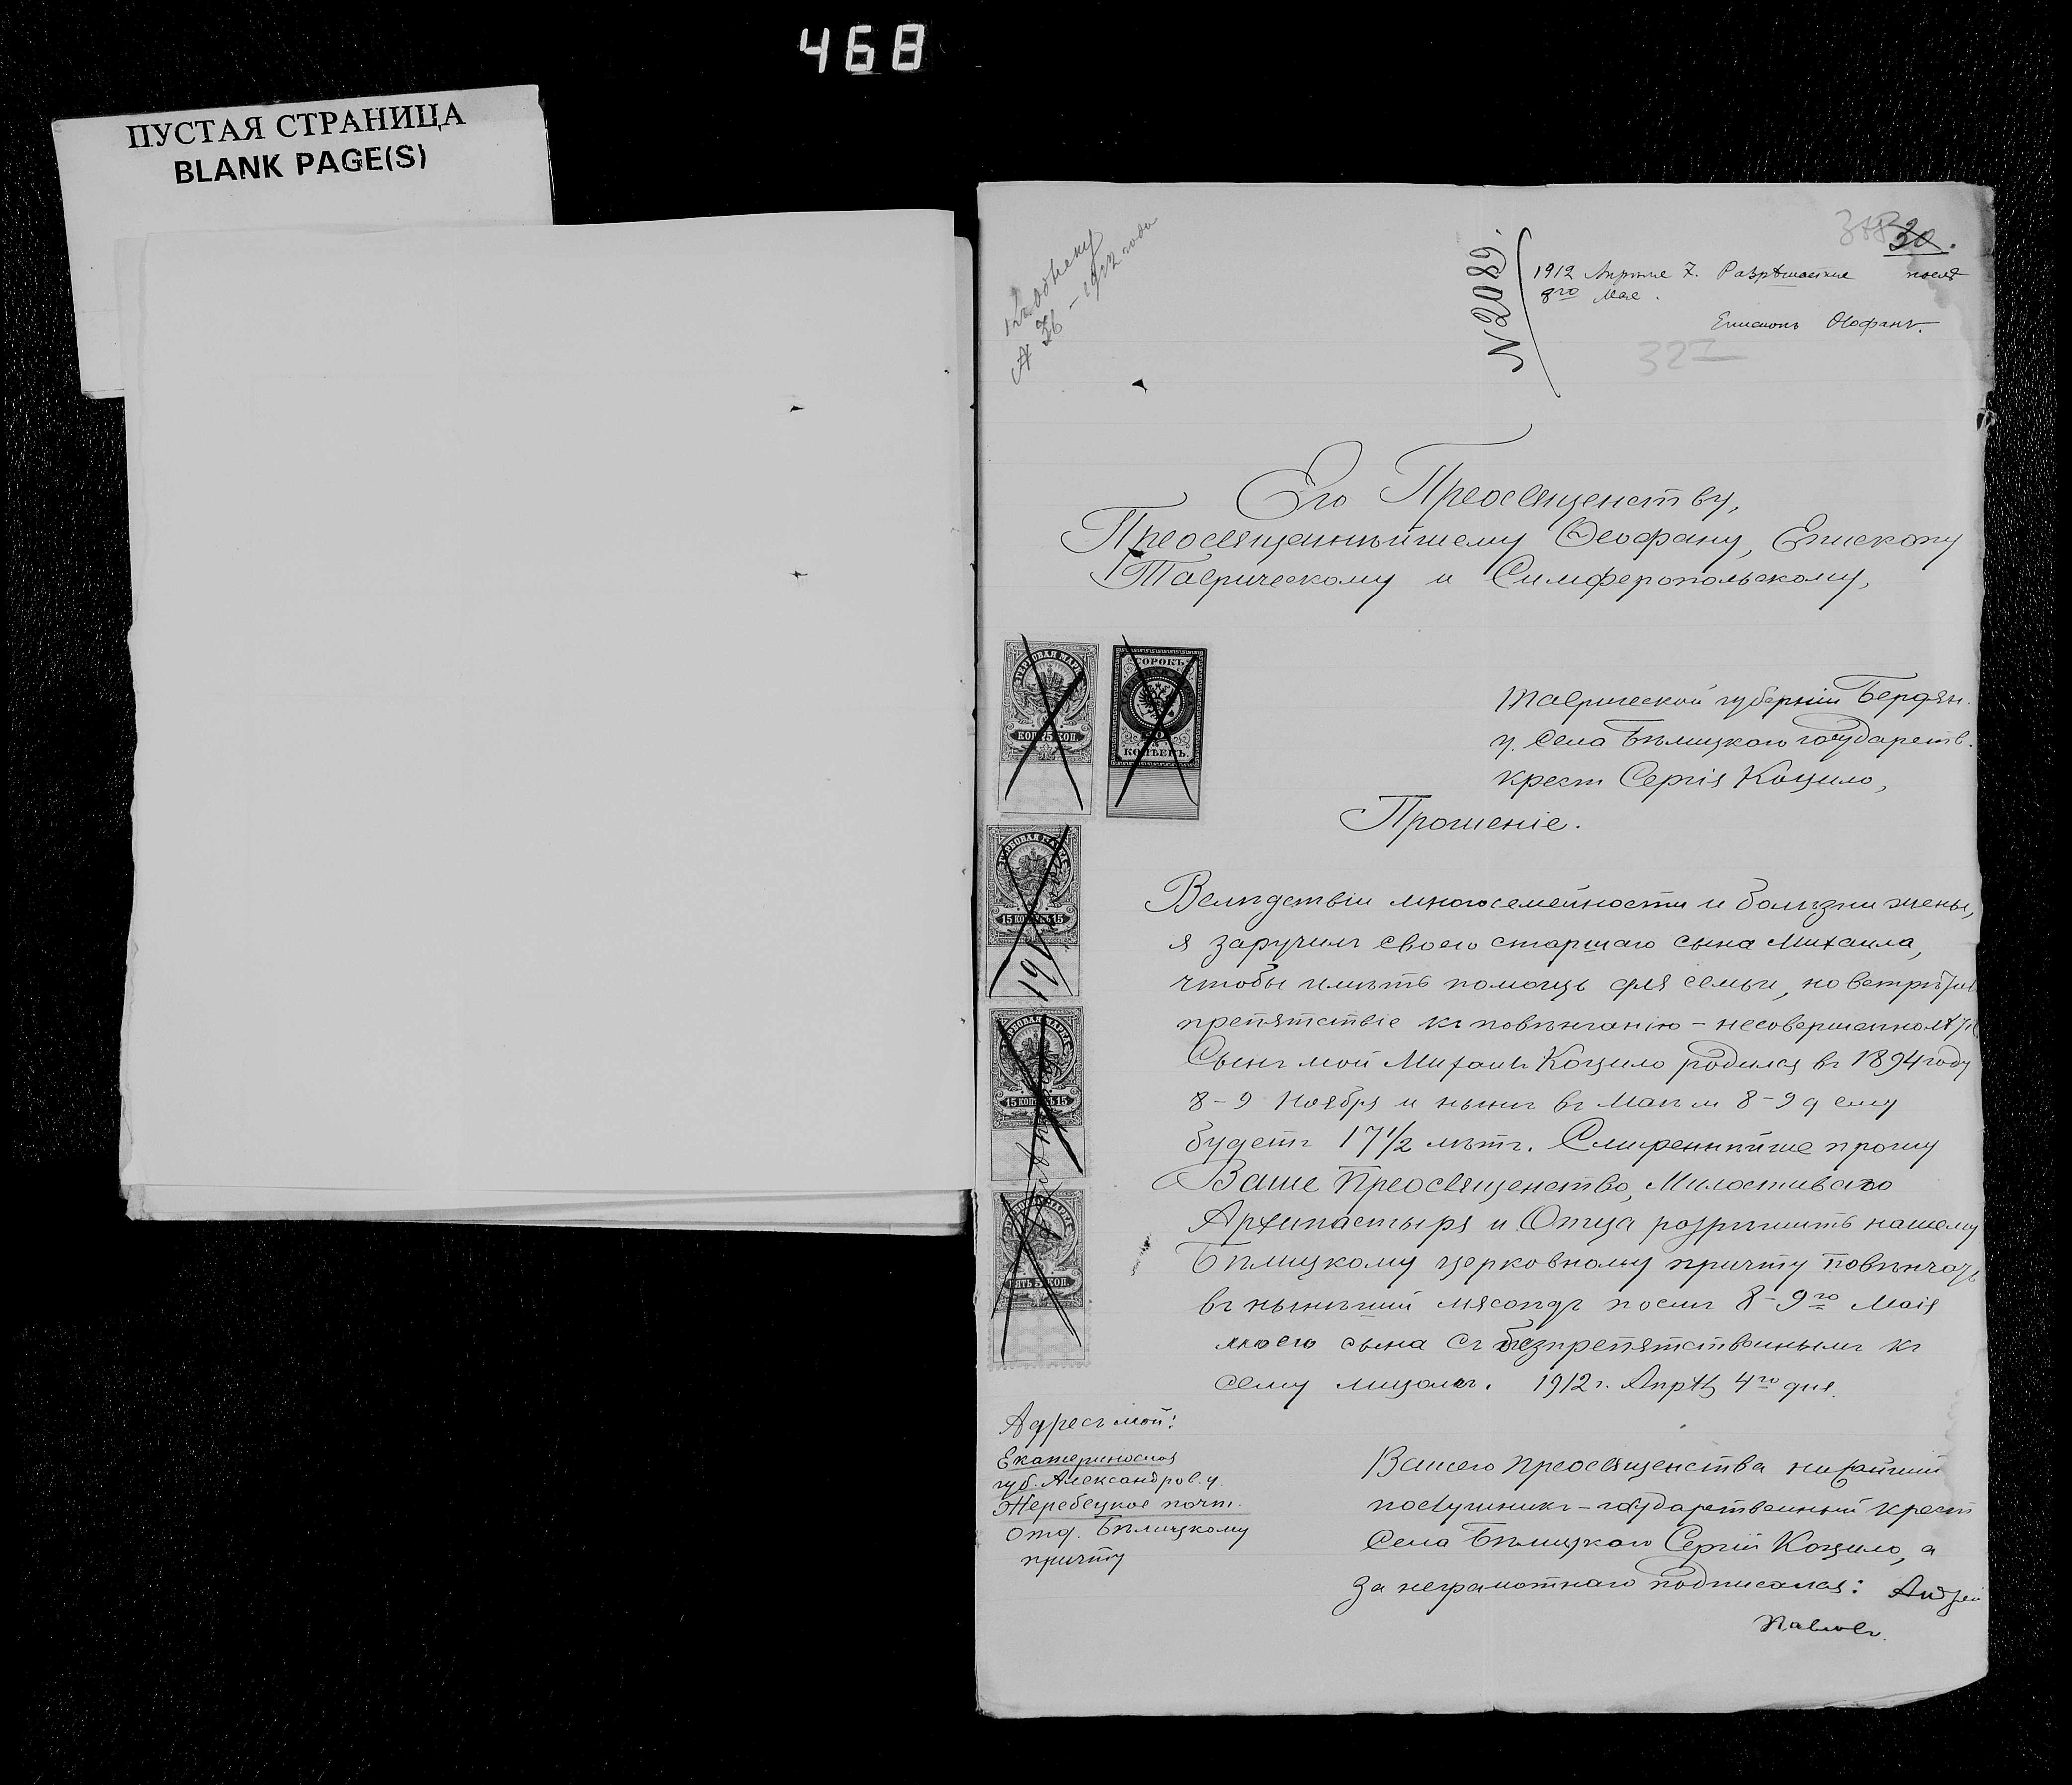 468
ПУСТАЯ СТРАНИЦА
BLANK PAGE(S)
№ 36 – 1912 года
№2089.
30.
1912 Апрѣля 7. Разрѣшается послѣ
8го Мая.
Епископъ Ѳеофанъ.
327
Его Преосвященству,
Преосвященнѣйшему Ѳеофану, Епископу
Таврическому и Симферопольскому,
ГЕРБОВАЯ МАРКА
КОП. 75 КОП.
СОРОКЪ
КОПѢЕКЪ.
ГЕРБОВАЯ МАРКА
15 КОПѢЕКЪ 15
ГЕРБОВАЯ МАРКА
15 КОПѢЕКЪ 15
ПЯТЬ 5 КОП.
Таврической губерніи Бердян.
у. Села Бѣлицкаго государств.
крест Сергія Коцило,
Прошеніе.
Вслѣдствіи многосемейности и болѣзни жены,
я заручилъ своего старшаго сына Михаила,
чтобы имѣть помощь для семьи, но встрѣтил
препятствіе къ повѣнчанію – несовершеннолѣтіе
Сынъ мой Михаилъ Коцило родился въ 1894 году
8–9 Ноября и нынѣ въ Маѣ м 8–9 д ему
будетъ 17 1/2 лѣтъ. Смиреннѣйше прошу
Ваше Преосвященство, Милостиваго
Архипастыря и Отца розрѣшить нашему
Бѣлицкому церковному причту повѣнчать
въ нынѣшній мясоѣдъ послѣ 8–9го Маія
моего сына съ безпрепятственнымъ къ
сему лицомъ. 1912 г. Апрѣл 4го дня.
Адресъ мой:
Екатериносла
губ. Александров. у.
Жеребецкое почт.
отд. Бѣлицкому
причту
Вашего Преосвященства нижайшій
послушникъ – государственный крест
Села Бѣлицкаго Сергій Коцило, а
за неграмотнаго подписался: Андрей
Павловъ.